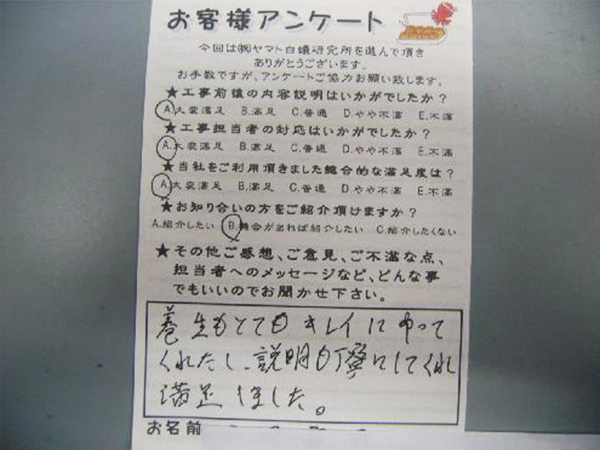 お客様アンケート
今回は㈱ヤマト白蟻研究所を選んで頂き
ありがとうございます。
お手数ですが、アンケートご協力お願い致します。
★工事前後の内容説明はいかがでしたか？
A.大変満足 B.満足 C.普通 D.やや不満 E.不満
★工事担当者の対応はいかがでしたか？
A.大変満足 B.満足 C.普通 D.やや不満 E.不満
★当社をご利用頂きました総合的な満足度は？
A.大変満足 B.満足 C.普通 D.やや不満 E.不満
★お知り合いの方をご紹介頂けますか？
A.紹介したい B.機会が出れば紹介したい C.紹介したくない
★その他ご感想、ご意見、ご不満な点、
担当者へのメッセージなど、どんな事
でもいいのでお聞かせ下さい。
養生もとてもキレイにやって
くれたし、説明も丁寧にしてくれ
満足しました。
お名前